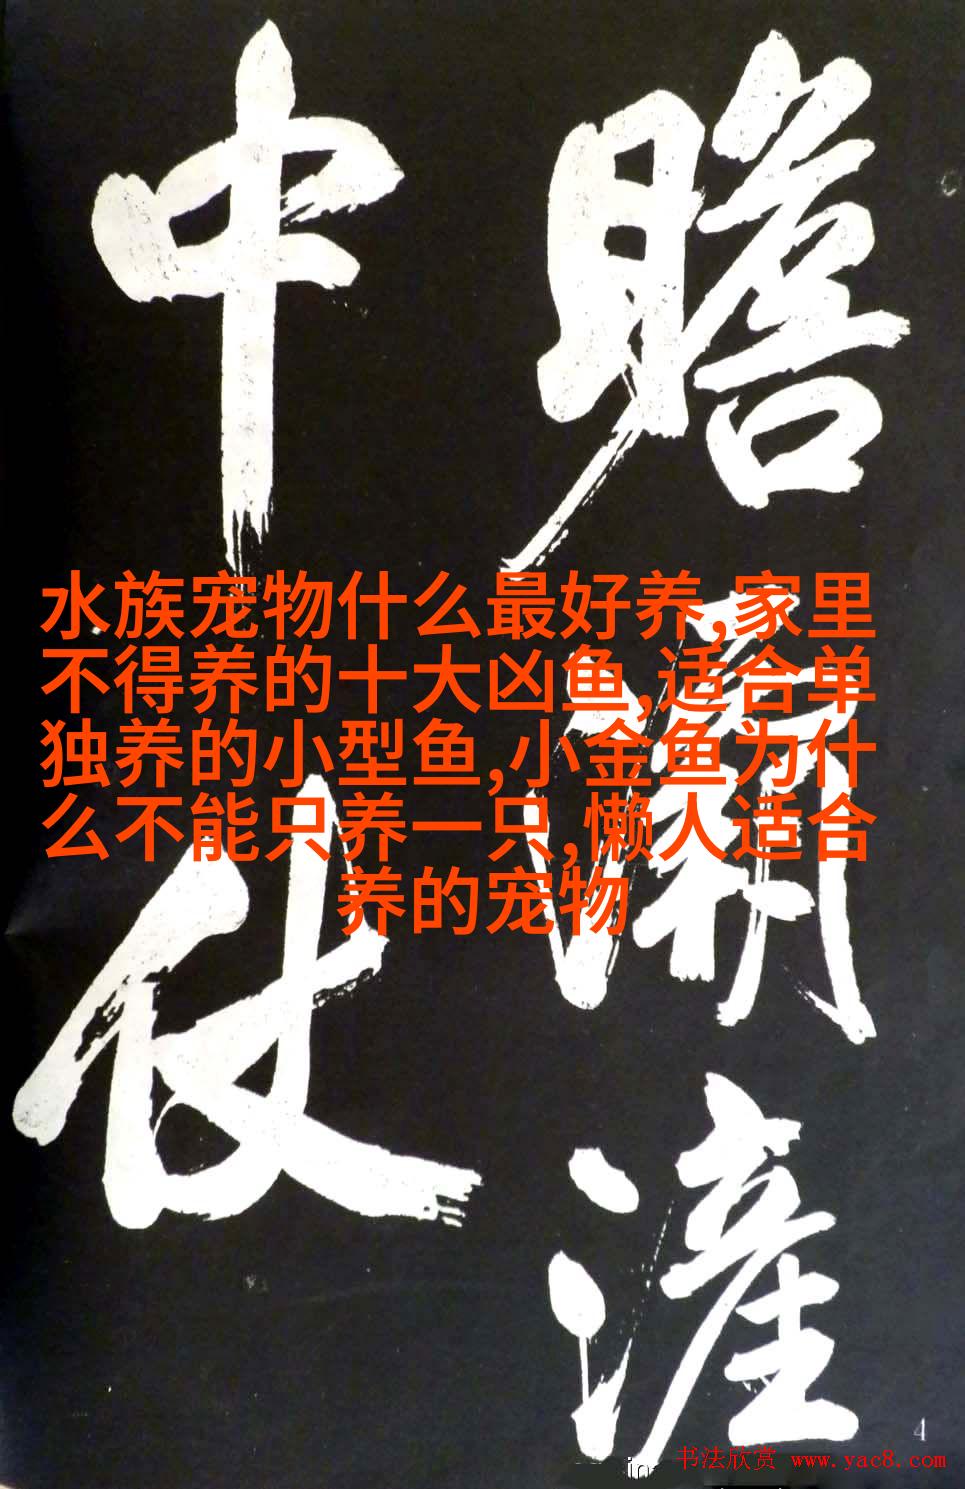 瞻
滻
中
仗
水族宠物什么最好养,家里
不得养的十大凶鱼,适合单
独养的小型鱼,小金鱼为什
么不能只养一只,懒人适合
养的宠物
4
书法欣赏 www.yac8.com